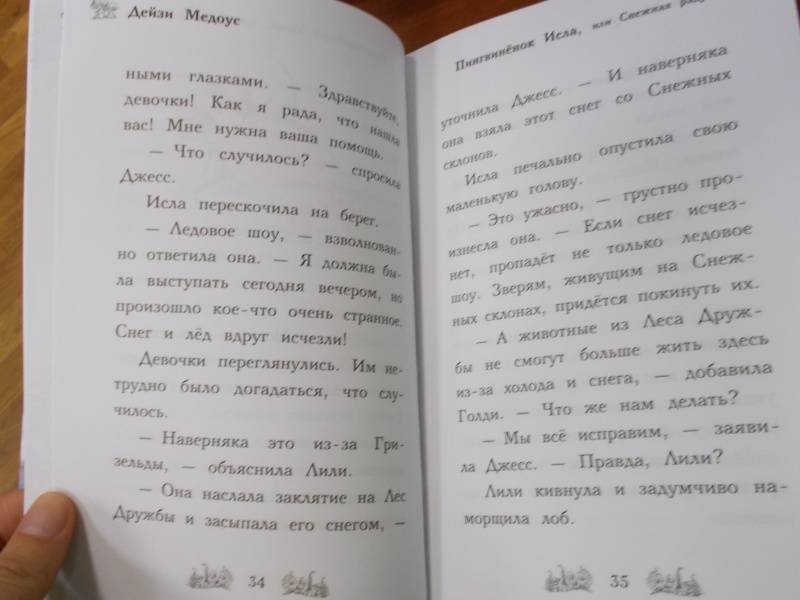 Дейзи Медоус
ными глазками. — Здравствуйте,
девочки! Как я рада, что нашла
вас! Мне нужна ваша помощь.
— Что случилось? — спросила
Джесс.
Исла перескочила на берег.
— Ледовое шоу, — взволнован-
но ответила она. — Я должна бы-
ла выступать сегодня вечером, но
произошло кое-что очень странное.
Снег и лёд вдруг исчезли!
Девочки переглянулись. Им не-
трудно было догадаться, что слу-
чилось.
— Наверняка это из-за Гри-
зельды, — объяснила Лили.
— Она наслала заклятие на Лес
Дружбы и засыпала его снегом, —
34
Пингвинёнок Исла, или Снежная
уточнила Джесс. — И наверняка
она взяла этот снег со Снежных
склонов.
Исла печально опустила свою
маленькую голову.
— Это ужасно, — грустно про-
изнесла она. — Если снег исчез-
нет, пропадёт не только ледовое
шоу. Зверям, живущим на Снеж-
ных склонах, придётся покинуть их.
— А животные из Леса Друж-
бы не смогут больше жить здесь
из-за холода и снега, — добавила
Голди. — Что же нам делать?
— Мы всё исправим, — заяви-
ла Джесс. — Правда, Лили?
Лили кивнула и задумчиво на-
морщила лоб.
35